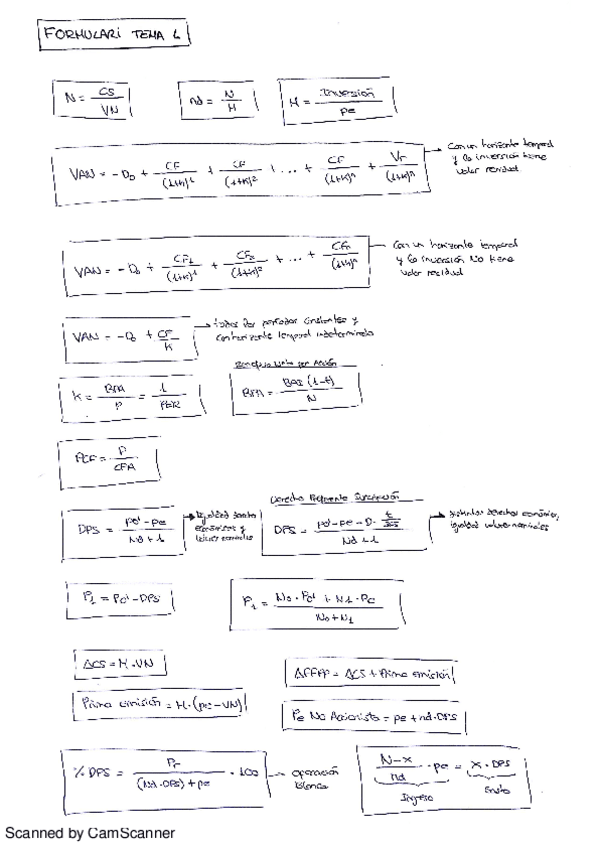 FORMULARI TEMA 1
N = CS / VN
nd = N / M
M = Inversión / pe
VAN = -D₀ + CF / (1+k)¹ + CF / (1+k)² + ... + CF / (1+k)ⁿ + Vr / (1+k)ⁿ
Con un horizonte temporal
y la inversión tiene
valor residual
VAN = -D₀ + CF₁ / (1+k)¹ + CF₂ / (1+k)² + ... + CFₙ / (1+k)ⁿ
Con un horizonte temporal
y la inversión No tiene
valor residual
VAN = -D₀ + CF / K
todos los periodos constantes y
con horizonte temporal indeterminado
K = BPA / P = 1 / PER
Beneficio Unitario por Acción
BPA = BAI (1-t) / N
PCF = P / CFA
DPS = po' - pe / Nd + 1
Igualdad
económicos y
Derecho Preferente Suscripción
DPS = po' - pe - D · t/365 / Nd + 1
distintos derechos económicos,
igualdad valores nominales
P₁ = Po' - DPS
P₁ = N₀ · Po' + N1 · Pe / N₀ + N₁
ΔCS = M · VN
ΔFFPP = ΔCS + Prima emisión
Prima emisión = M · (pe - VN)
Pe No Accionista = pe + nd · DPS
% DPS = Pr / (Nd · DPS) + pe · 100
operación
blanca
N - x / nd · pe = x · DPS
Ingreso
Scanned by CamScanner